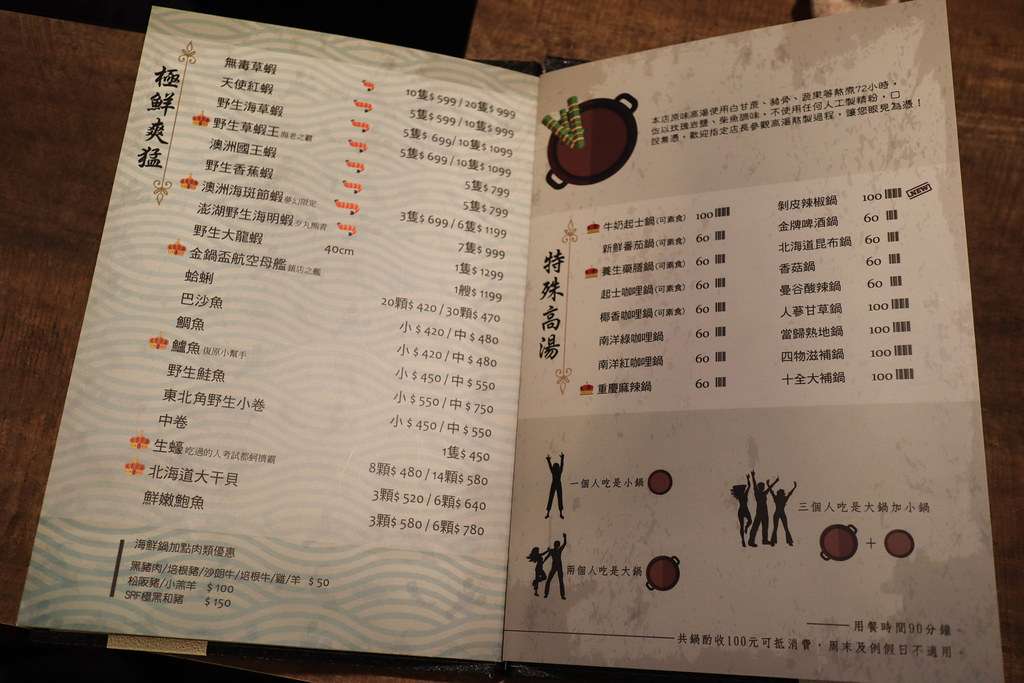 極鮮爽猛
無毒草蝦 10隻$599/20隻$999
天使紅蝦 5隻$599/10隻$999
野生海草蝦 5隻$699/10隻$1099
野生草蝦王 海老之霸 5隻$699/10隻$1099
澳洲國王蝦 5隻$799
野生香蕉蝦 5隻$799
澳洲海斑節蝦 夢幻限定 3隻$699/6隻$1199
澎湖野生海明蝦 7隻$999
野生大龍蝦 40cm 1隻$1299
金鍋盃航空母艦 鎮店之艦 1艘$1199
蛤蜊 20顆$420/30顆$470
巴沙魚 小$420/中$480
鯛魚 小$420/中$480
鱸魚 復原小幫手 小$450/中$550
野生鮭魚 小$550/中$750
東北角野生小卷 小$450/中$550
中卷 1隻$450
生蠔 吃過的人考試都蚵擠霸 8顆$480/14顆$580
北海道大干貝 3顆$520/6顆$640
鮮嫩鮑魚 3顆$580/6顆$780
海鮮鍋加點肉類優惠
黑豬肉/培根豬/沙朗牛/培根牛/雞/羊 $50
松阪豬/小羔羊 $100
SRF極黑和豬 $150
本店原味高湯使用白甘蔗、豬骨、蔬果等熬煮72小時，
佐以玫瑰岩鹽、柴魚調味，不使用任何人工製精粉，口
說無憑，歡迎指定店長參觀高湯熬製過程，讓您眼見為憑！
特殊高湯
牛奶起士鍋(可素食) 100
新鮮番茄鍋(可素食) 60
養生藥膳鍋(可素食) 60
起士咖哩鍋(可素食) 60
椰香咖哩鍋(可素食) 60
南洋綠咖哩鍋 60
南洋紅咖哩鍋 60
重慶麻辣鍋 60
剝皮辣椒鍋 100 NEW
金牌啤酒鍋 60
北海道昆布鍋 60
香菇鍋 60
曼谷酸辣鍋 60
人蔘甘草鍋 100
當歸熟地鍋 100
四物滋補鍋 100
十全大補鍋 100
一個人吃是小鍋
兩個人吃是大鍋
三個人吃是大鍋加小鍋
+
用餐時間90分鐘。
共鍋酌收100元可抵消費，周末及例假日不適用。